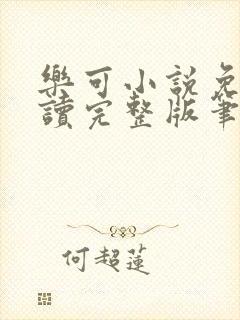 樂可小說免
讀完整版筆
何超蓮